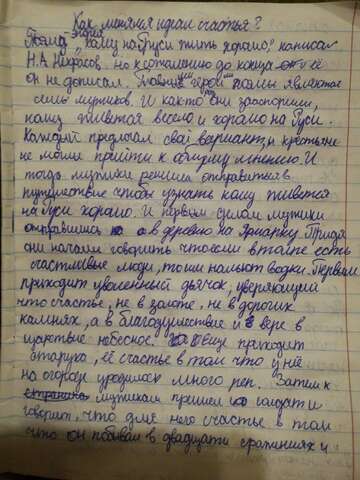 Как менялся идеал счастья?
Поэму эпопея "кому на Руси жить хорошо," написал
Н.А. Некрасов. но к сожалению до конца её
он не дописал. Главными героями поэмы являются
семь мужиков. И как то они заспорили,
кому живется весело и хорошо на Руси.
Каждый предлогал свой вариант, и крестьяне
не могли прийти к общему мнению. И
тогда мужики решили отправиться в
путешествие чтобы узнать кому живется
на Руси хорошо. И первым делом мужики
отправились в деревню на Ярмарку. Придя
они начали говорить что если в толпе есть
счастливые люди, то им нальют водки. Первым
приходит уволенный дьячок, уверяющий
что счастье, не в золоте, не в дорогих
камнях, а в благодушестве и в вере в
царствие небесное. Ей приходит
старуха, её счастье в том что у неё
на огороде уродилось много реп. Затем к
мужикам пришел солдат и
говорит, что для него счастье в том
что он побывал в двадцати сражениях и